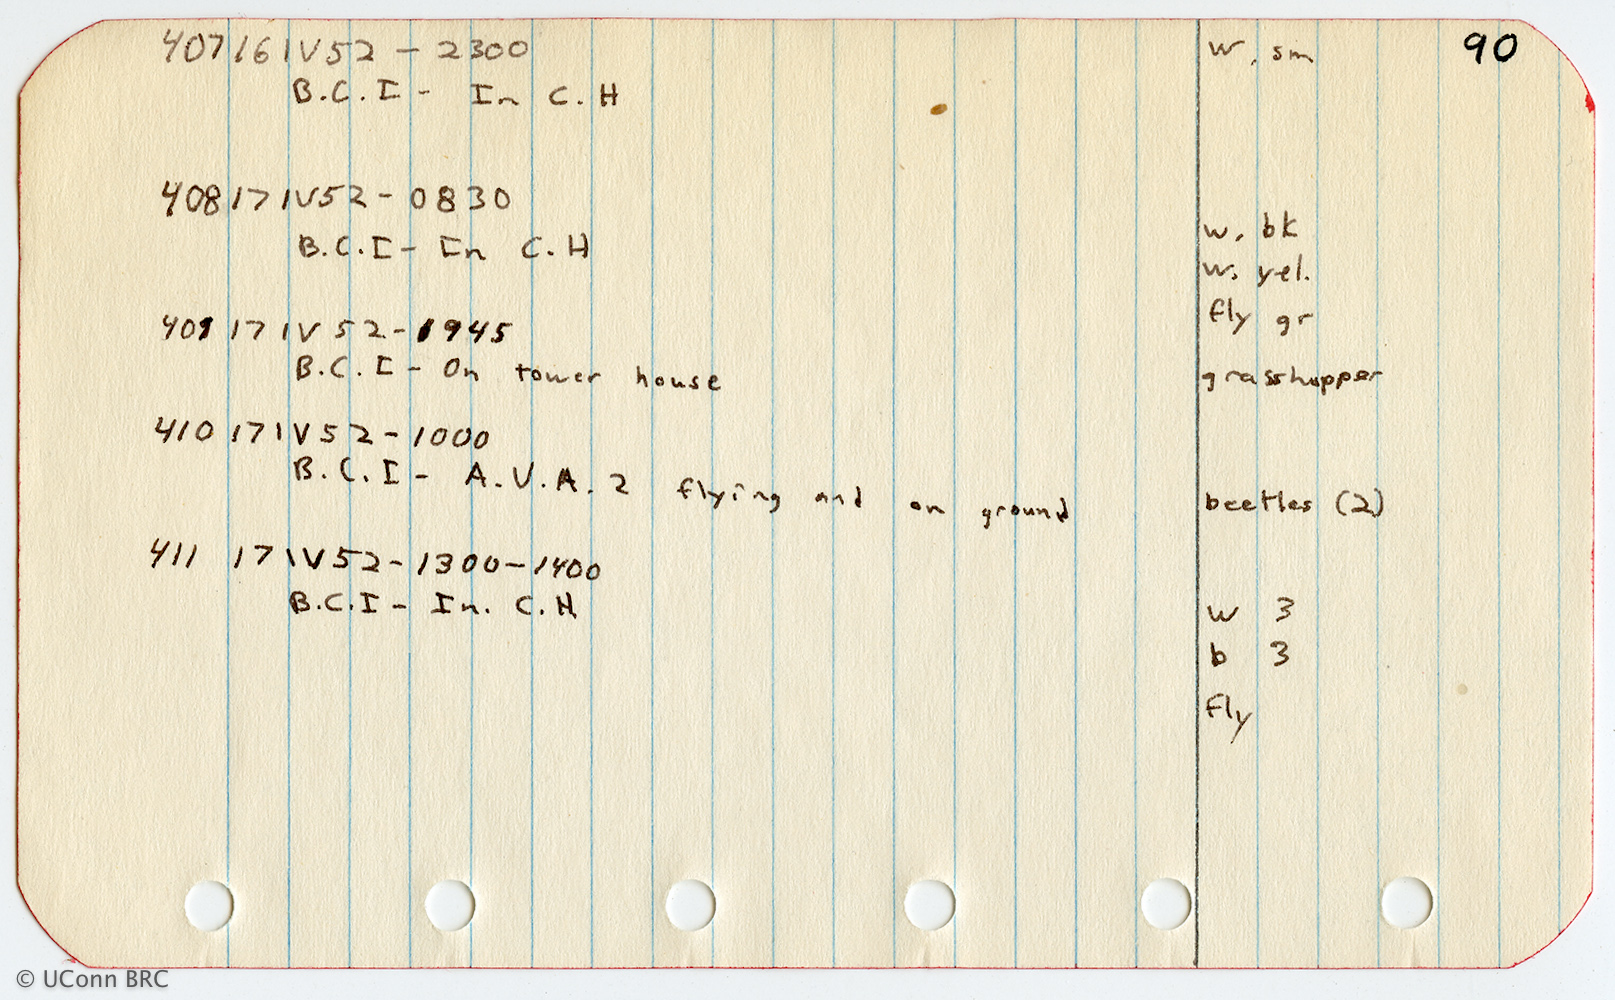 90
407 16 IV 52 - 2300 w, sm
B.C.I - In C.H
408 17 IV 52 - 0830
w, bk
B.C.I - In C.H
w, yel.
fly gr
409 17 IV 52 - 1945
B.C.I - On tower house grasshopper
410 17 IV 52 - 1000
B.C.I - A.V.A. 2 flying and on ground beetles (2)
411 17 IV 52 - 1300 - 1400
B.C.I - In. C.H w 3
b 3
fly
© UConn BRC